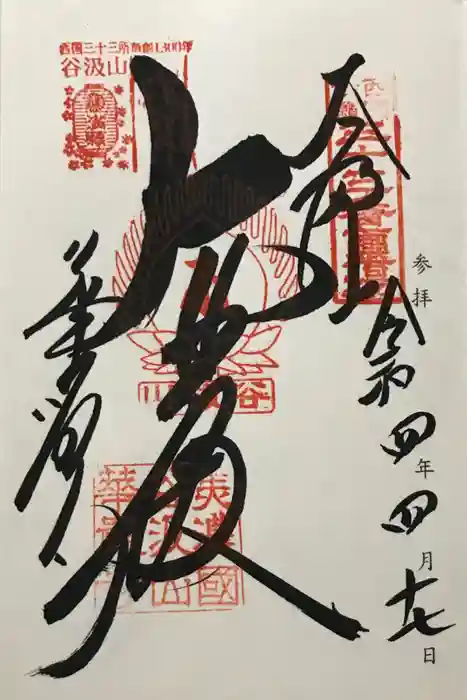 奉拝
参拝 令和四年四月十七日
大悲殿
華厳寺
西国三十三所草創1300年
谷汲山
谷汲山
美濃國
谷汲山
華厳寺